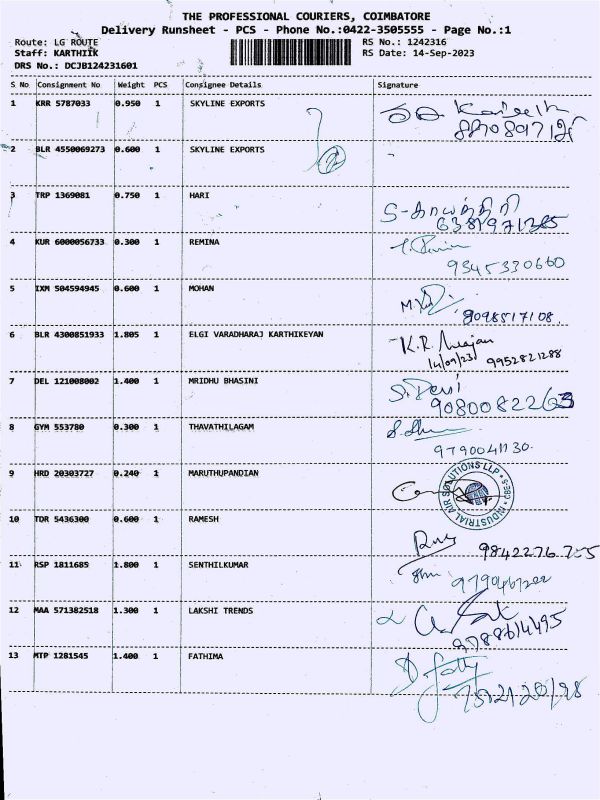 THE PROFESSIONAL COURIERS, COIMBATORE
Delivery Runsheet - PCS - Phone No.:0422-3505555 - Page No.:1
Route: LG ROUTE RS No.: 1242316
Staff: KARTHIIK RS Date: 14-Sep-2023
DRS No.: DCJB124231601
S No Consignment No Weight PCS Consignee Details Signature
1 KRR 5787033 0.950 1 SKYLINE EXPORTS
2 BLR 4550069273 0.600 1 SKYLINE EXPORTS
3 TRP 1369081 0.750 1 HARI
S-காயத்திரி
6381971385
4 KUR 6000056733 0.300 1 REMINA
9345330660
5 IXM 504594945 0.600 1 MOHAN
9098517108
6 BLR 4300851933 1.805 1 ELGI VARADHARAJ KARTHIKEYAN
K.R.
14/09/23 9952821288
7 DEL 121008002 1.400 1 MRIDHU BHASINI
S. Devi
9080082263
8 GYM 553780 0.300 1 THAVATHILAGAM
9790041130
9 HRD 20303727 0.240 1 MARUTHUPANDIAN
INDUSTRIAL AIR SOLUTIONS LLP
CBE-5
10 TDR 5436300 0.600 1 RAMESH
9842276725
11 RSP 1811685 1.800 1 SENTHILKUMAR
12 MAA 571382518 1.300 1 LAKSHI TRENDS
9788614495
13 MTP 1281545 1.400 1 FATHIMA